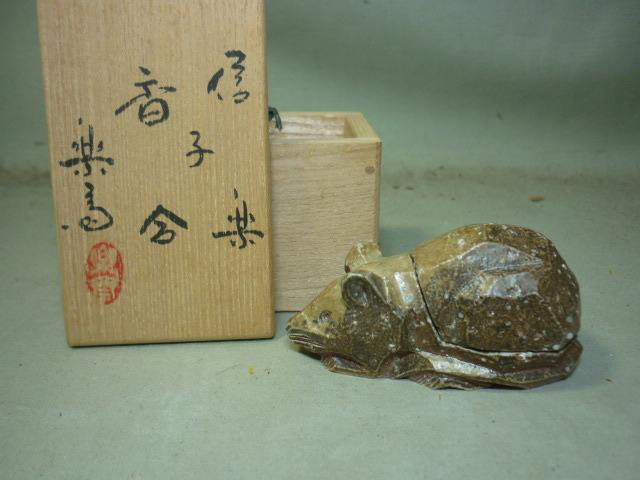 信楽
子
香合
楽焉